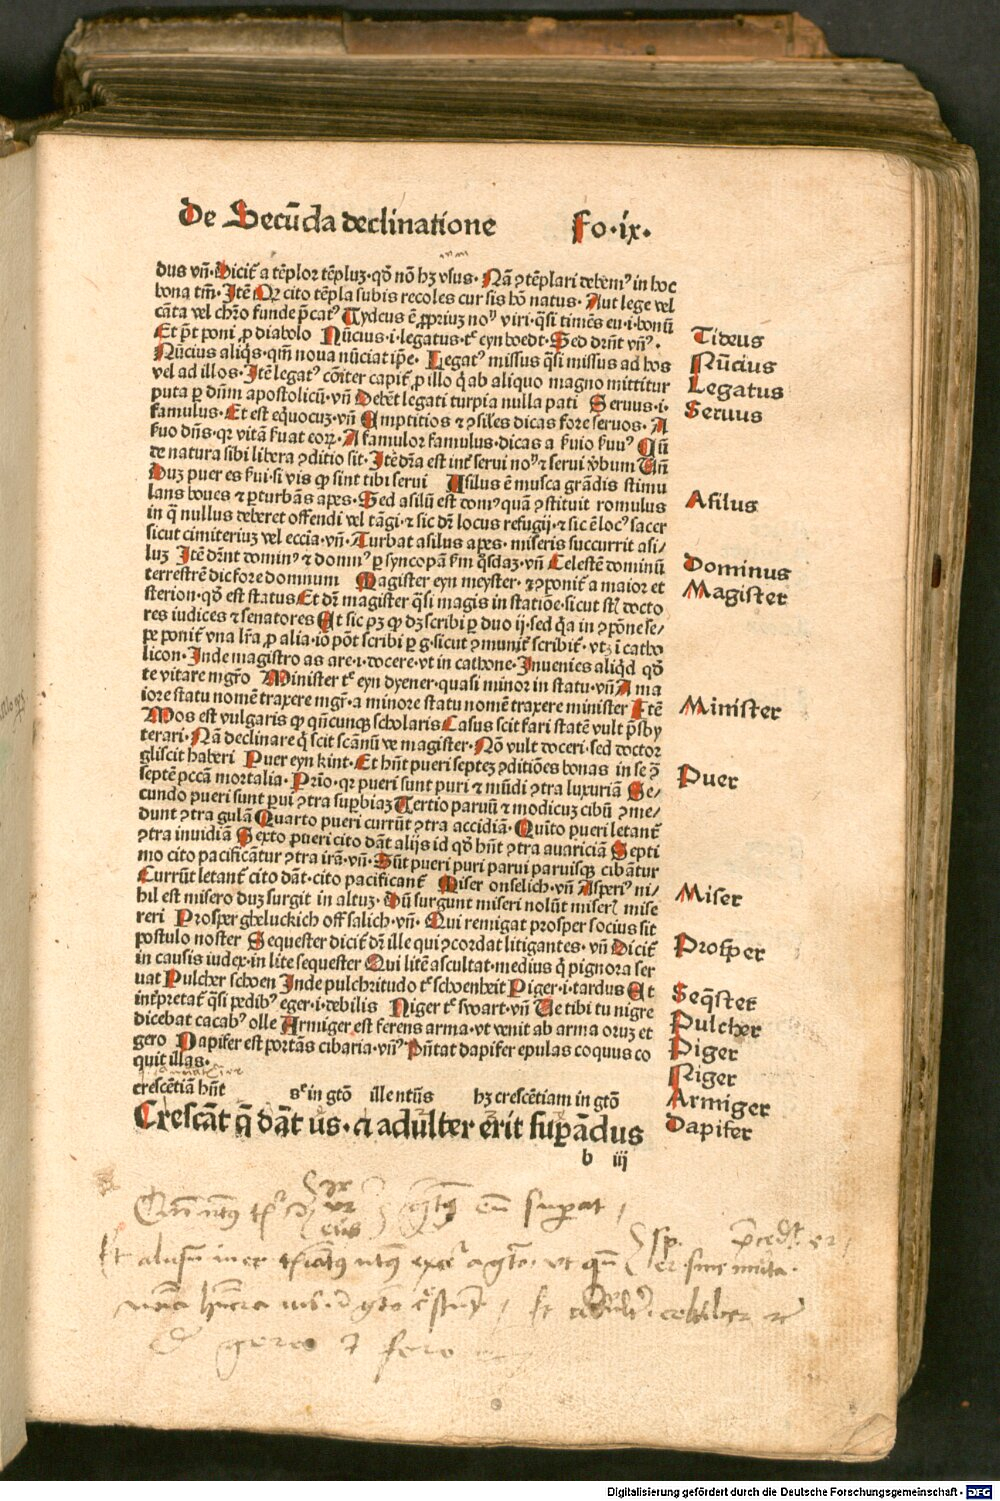 De Secūda declinatione Fo·ix·
dus vñ·Dicit̄ a tēplor tēpluȝ·qḋ nō hȝ vsus· Nā ꝯtēplari debemꝰ in hoc
bona tm̄·Itē Qꝛ cito tēpla subis recoles cur sis hō natus· Aut lege vel
cāta vel chꝛo funde p̄catꝰ Tydeus ē ꝓpriuȝ noꝰ viri·q̄si timēs eu·i·bonū
Et p̄t poni ꝓ diabolo Nūcius·i·legatus·tꝭ eyn boedt·Sed dr̄nt vñꝰ·
Nūcius aliq̇s·qm̄ noua nūciat ip̄e· Legatꝰ missus q̄si missus ad hos
vel ad illos·Itē legatꝰ cōiter capit̄ ꝓ illo q̇ ab aliquo magno mittitur
puta ꝑ dn̄m apostolicū·vñ Debēt legati turpia nulla pati Seruus·i·
famulus·Et est equocuȝ·vñ Emptitios ⁊ ꝯsiles dicas fore seruos· A
ẜuo dn̄s·qꝛ vitā ẜuat eoꝝ·A famulor famulus·dicas a ẜuio ẜuuꝰ Cū
de natura sibi libera ꝯditio sit·Itē dr̄a est int̄ serui noꝰ ⁊ serui v̄bum Vñ
Duȝ puer es ẜui·si vis ꝙ sint tibi serui Asilus ē musca grādis stimu
lans boues ⁊ ꝑturbās apes·Sed asilū est domꝰ quā ꝯstituit romulus
in q̄ nullus deberet offendi vel tāgi·⁊ sic dr̄ locus refugij·⁊ sic ē locꝰ sacer
sicut cimiteriuȝ vel eccia·vñ·Turbat asilus apes· miseris succurrit asi/
luȝ Itē dr̄nt dominꝰ ⁊ domnꝰ ꝑ syncopā ẜm q̄sdaȝ·vñ Celestē dominū
terrestrē dic fore domnum Magister eyn meyster· ⁊ ꝯponit̄ a maior et
sterion·qḋ est status Et dr̄ magister q̄si magis in statiōe·sicut sꝉ docto
res iudices ⁊ senatores Et sic pȝ ꝙ dȝ scribi ꝑ duo ij·sed q̇a in ꝯpōne se/
pe ponit̄ vna lr̄a ꝓ alia·iō pōt scribi ꝑ g·sicut ꝯmunit̄ scribit̄· vtȝ ī catho
licon·Inde magistro as are·i·docere·vt in cathone·Inuenies aliq̇d qḋ
te vitare mgr̄o Minister tꝭ eyn dyener·quasi minor in statu·vñ A ma
iore statu nomē traxere mgr̄·a minore statu nomē traxere minister Itē
Mos est vulgaris ꝙ qn̄cunqȝ scholaris Casus scit fari statē vult p̄sby
terari·Nā declinare q̇ scit scānū ve magister·Nō vult doceri·sed doctor
gliscit haberi Puer eyn kint·Et hn̄t pueri septeȝ ꝯditiōes bonas in se ꝯ̄
septē pcc̄a mortalia·Prīo·qꝛ pueri sunt puri ⁊ mūdi ꝯtra luxuriā Se/
cundo pueri sunt ꝑui ꝯtra suꝑbiaȝ Tertio paruū ⁊ modicuȝ cibū ꝯme/
dunt ꝯtra gulā Quarto pueri currūt ꝯtra accidiā·Quīto pueri letant̄
ꝯtra inuidiā Sexto pueri cito dāt alijs id qḋ hn̄t ꝯtra auariciā Septi
mo cito pacificātur ꝯtra irā·vñ·Sūt pueri puri parui paruisqȝ cibātur
Currūt letant̄ cito dāt·cito pacificant̄ Miser onselich·vñ Asperiꝰ ni/
hil est misero duȝ surgit in altuȝ·Dū surgunt miseri nolūt miserꝭ mise
reri Prosper gheluckich off salich·vñ· Qui remigat prosper socius sit
postulo noster Sequester dicit̄ dr̄ ille qui ꝯcordat litigantes· vñ Dicit̄
in causis iudex·in lite sequester Qui litē ascultat·medius q̇ pignora ser
uat Pulcher schoen Inde pulchritudo tꝭ schoenheit Piger·i·tardus Et
int̄pretat̄ q̄si pedibꝰ eger·i·debilis Niger tꝭ swart·vñ Ue tibi tu nigre
dicebat cacabꝰ olle Armiger est ferens arma·vt venit ab arma oruȝ et
gero Dapifer est portās cibaria·vñꝰ Pn̄tat dapifer epulas coquus co
quit illas·
crescētiā hn̄t sꝭ in gtō ille ntūs hȝ crescētiam in gtō
Crescāt q̄ dāt us·ci adulter erit suꝑādus
b iij
Tideus
Nūcius
Legatus
Seruus
Asilus
Dominus
Magister
Minister
Puer
Miser
Prosper
Seq̄ster
Pulcher
Piger
Niger
Armiger
Dapifer
gero ⁊ fero
Digitalisierung gefördert durch die Deutsche Forschungsgemeinschaft · DFG